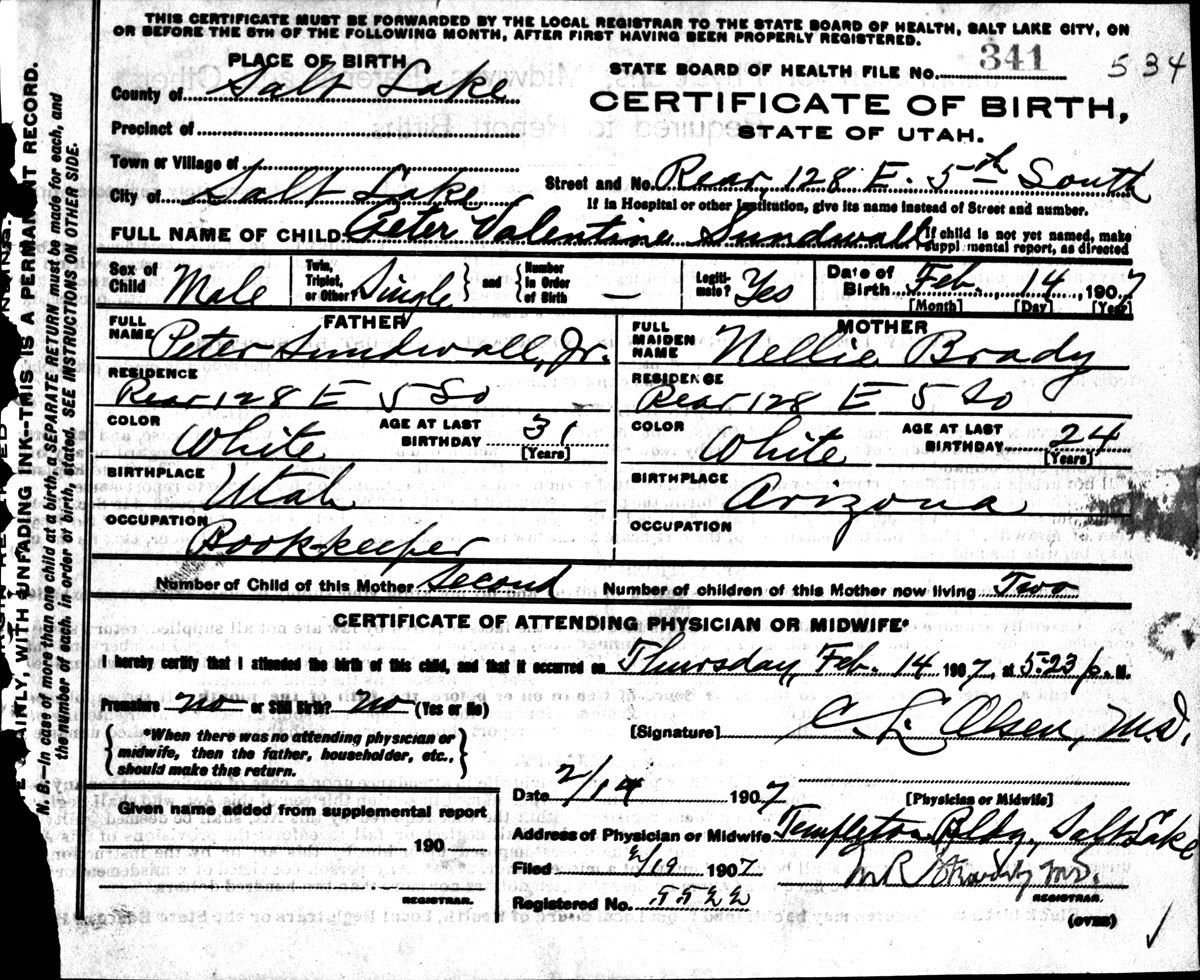 THIS CERTIFICATE MUST BE FORWARDED BY THE LOCAL REGISTRAR TO THE STATE BOARD OF HEALTH, SALT LAKE CITY, ON
OR BEFORE THE 5TH OF THE FOLLOWING MONTH, AFTER FIRST HAVING BEEN PROPERLY REGISTERED.
PLACE OF BIRTH
STATE BOARD OF HEALTH FILE NO. 341 534
County of Salt Lake
CERTIFICATE OF BIRTH,
STATE OF UTAH.
Precinct of
Town or Village of
City of Salt Lake
Street and No. Rear, 128 E. 5th South
If in Hospital or other Institution, give its name instead of Street and number.
FULL NAME OF CHILD. Peter Valentine Sundwall
If child is not yet named, make
supplemental report, as directed
Sex of Child Male Twin, Triplet, or Other? Single and Number in Order of Birth — Legitimate? Yes Date of Birth Feb. 14, 1907
[Month] [Day] [Year]
FATHER
FULL NAME Peter Sundwall, Jr.
RESIDENCE
Rear 128 E 5 So
COLOR White AGE AT LAST BIRTHDAY 31
[Years]
BIRTHPLACE Utah
OCCUPATION
Book-keeper
MOTHER
FULL MAIDEN NAME Nellie Brady
RESIDENCE
Rear 128 E 5 So
COLOR White AGE AT LAST BIRTHDAY 24
[Years]
BIRTHPLACE Arizona
OCCUPATION
Number of Child of this Mother Second Number of children of this Mother now living Two
CERTIFICATE OF ATTENDING PHYSICIAN OR MIDWIFE*
I hereby certify that I attended the birth of this child, and that it occurred on Thursday, Feb. 14 1907, at 5-23 p. M.
Premature no or Still Birth? no (Yes or No)
*When there was no attending physician or
midwife, then the father, householder, etc.,
should make this return.
[Signature] C L Olsen, M.D.
Date 2/14 1907
[Physician or Midwife]
Given name added from supplemental report
190
REGISTRAR.
Address of Physician or Midwife Templeton Bldg, Salt Lake
Filed 2/19 1907
M.D.
REGISTRAR.
Registered No.
(OVER)
WITH UNFADING INK--THIS IS A PERMANENT RECORD.
N. B.—In case of more than one child at a birth, a SEPARATE RETURN must be made for each, and
the number of each, in order of birth, stated. SEE INSTRUCTIONS ON OTHER SIDE.